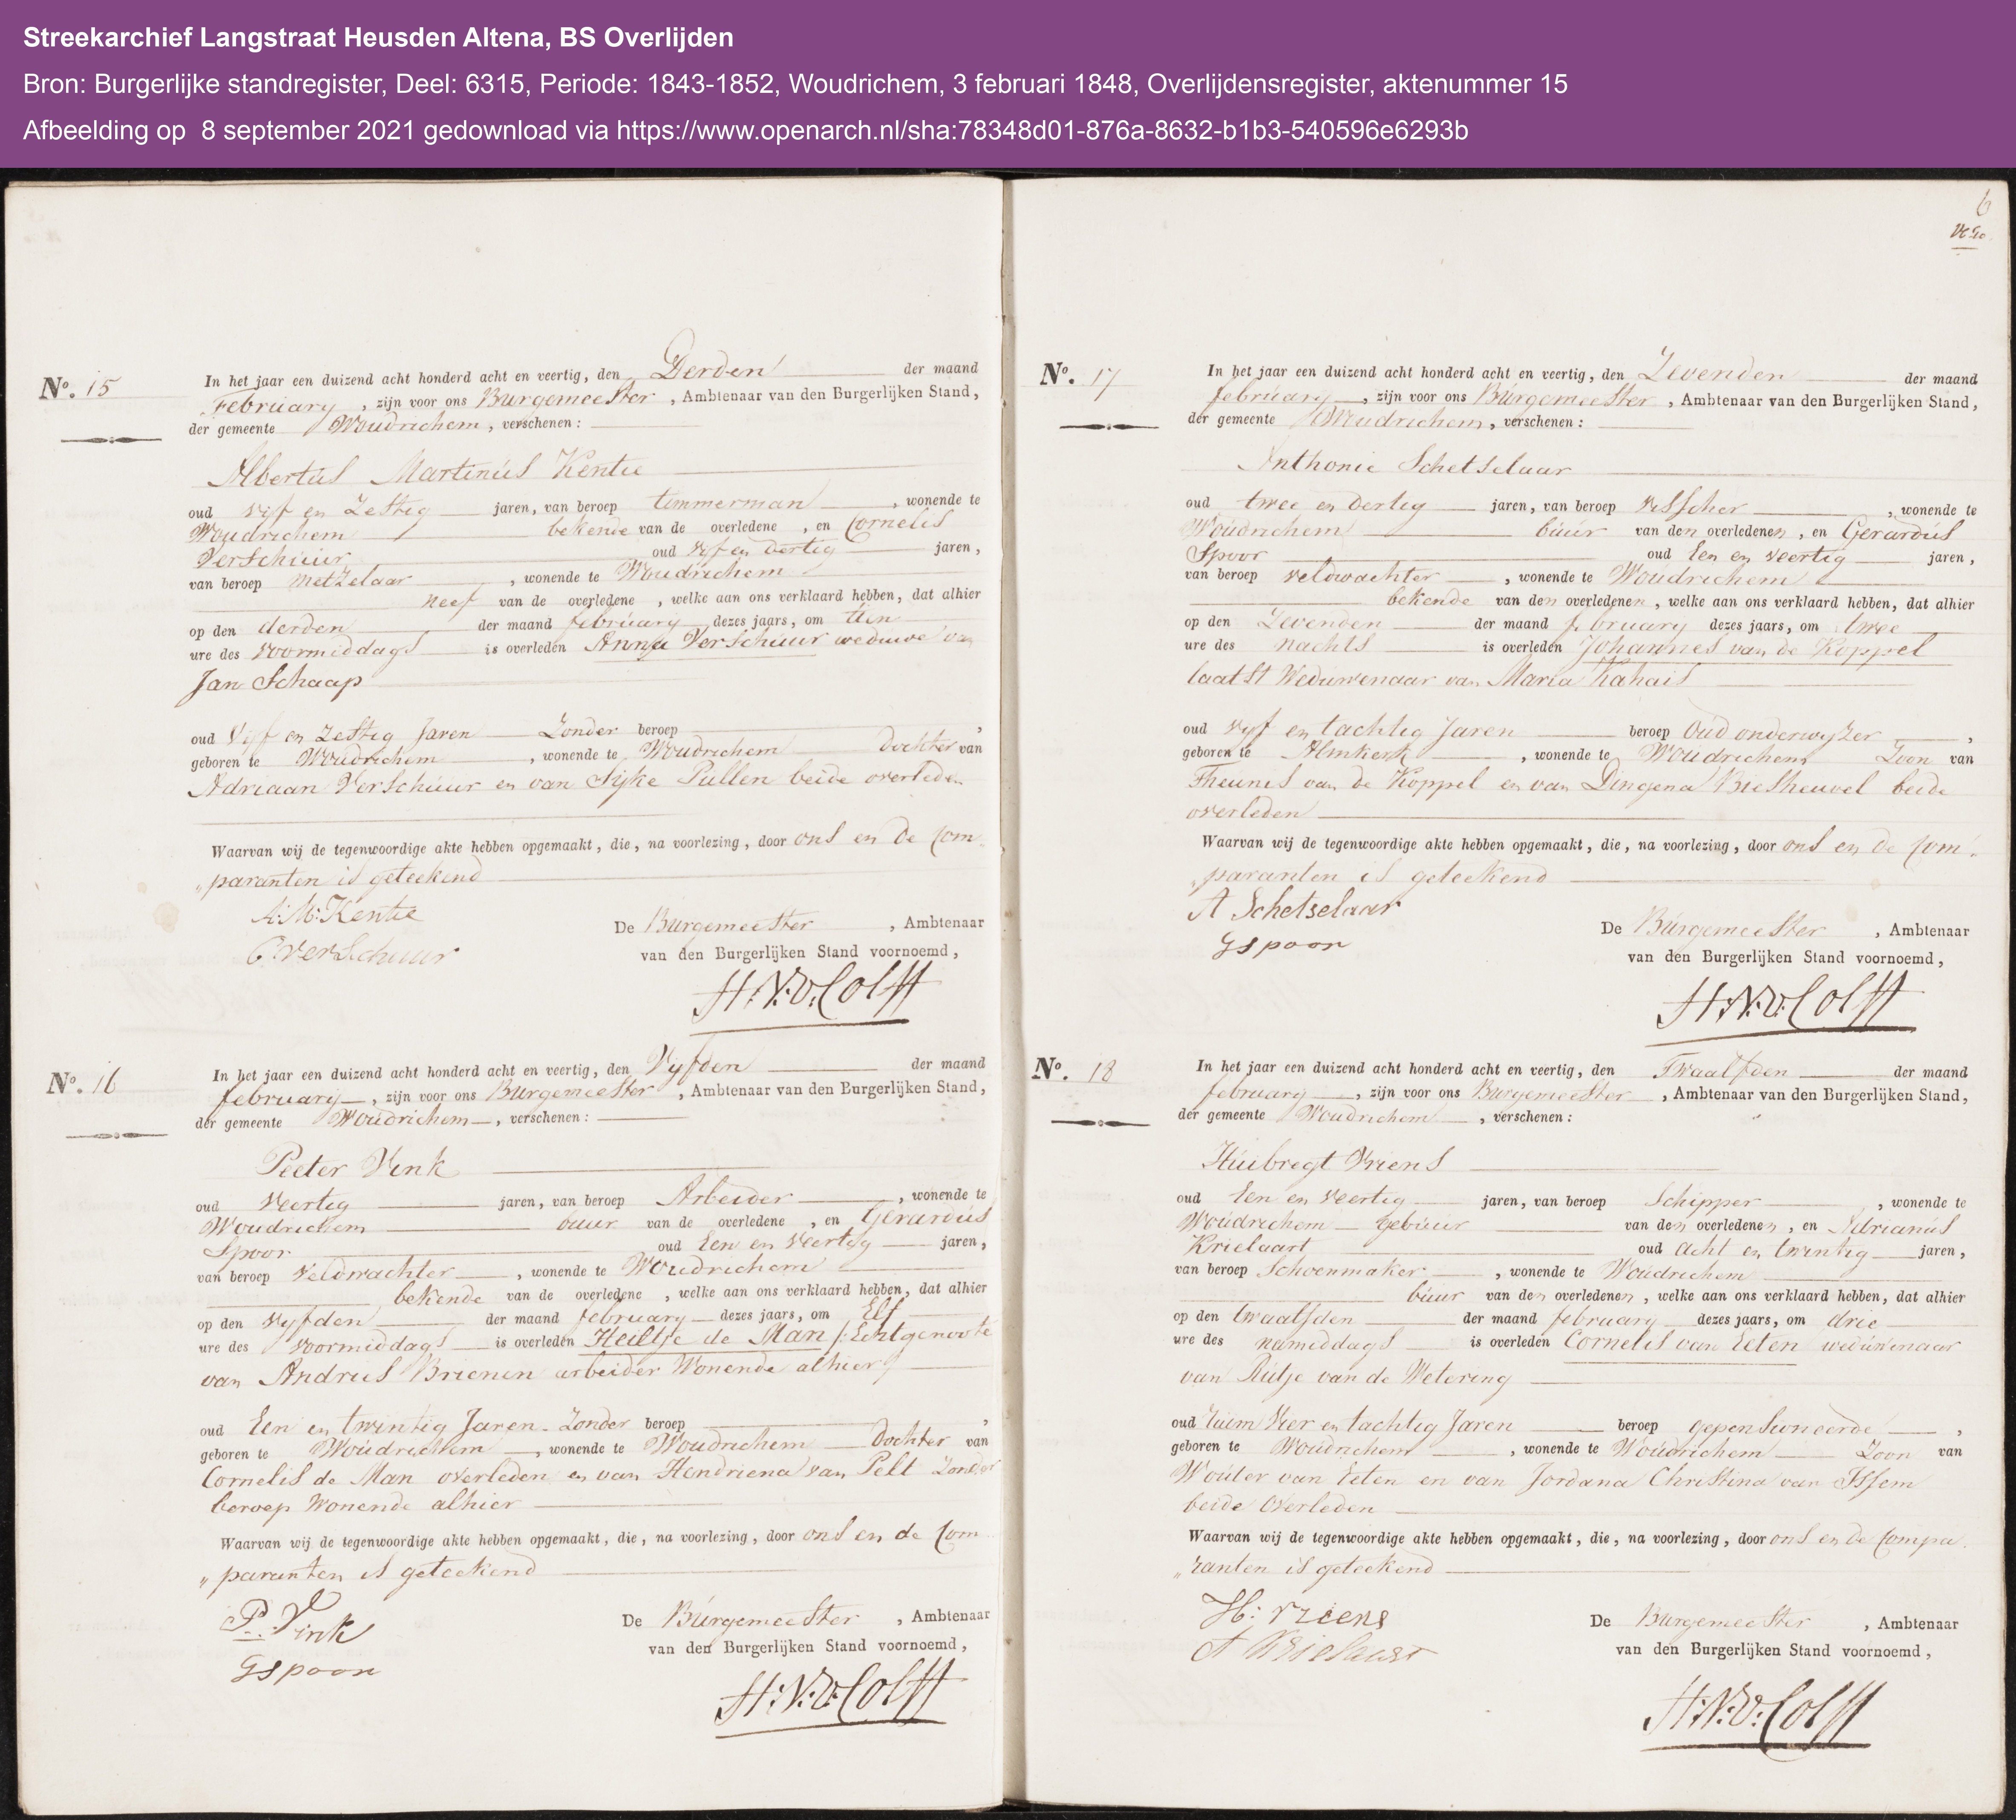 Streekarchief Langstraat Heusden Altena, BS Overlijden
Bron: Burgerlijke standregister, Deel: 6315, Periode: 1843-1852, Woudrichem, 3 februari 1848, Overlijdensregister, aktenummer 15
Afbeelding op 8 september 2021 gedownload via https://www.openarch.nl/sha:78348d01-876a-8632-b1b3-540596e6293b
No. 15
In het jaar een duizend acht honderd acht en veertig, den Derden der maand
February, zijn voor ons Burgemeester, Ambtenaar van den Burgerlijken Stand,
der gemeente Woudrichem, verschenen:
Albertus Martinus Kentie
oud vijf en Zestig jaren, van beroep timmerman, wonende te
Woudrichem bekende van de overledene, en Cornelis
Verschuur oud vijf en dertig jaren,
van beroep Metzelaar, wonende te Woudrichem
neef van de overledene, welke aan ons verklaard hebben, dat alhier
op den derden der maand february dezes jaars, om tien
ure des voormiddags is overleden Anna Verschuur weduwe van
Jan Schaap
oud Vijf en Zestig Jaren Zonder beroep,
geboren te Woudrichem, wonende te Woudrichem Dochter van
Adriaan Verschuur en van Sijke Pullen beide overleden
Waarvan wij de tegenwoordige akte hebben opgemaakt, die, na voorlezing, door ons en de Com-
„paranten is geteekend
A:M:Kentie
C Verschuur
De Burgemeester, Ambtenaar
van den Burgerlijken Stand voornoemd,
H:N:v:Colff
No. 16
In het jaar een duizend acht honderd acht en veertig, den Vijfden der maand
february, zijn voor ons Burgemeester, Ambtenaar van den Burgerlijken Stand,
der gemeente Woudrichem, verschenen:
Peeter Vink
oud veertig jaren, van beroep Arbeider, wonende te
Woudrichem buur van de overledene, en Gerardus
Spoor oud Een en veertig jaren,
van beroep veldwachter, wonende te Woudrichem
bekende van de overledene, welke aan ons verklaard hebben, dat alhier
op den vijfden der maand february dezes jaars, om Elf
ure des voormiddags is overleden Heiltje de Man /:Echtgenoote
van Andries Brienen arbeider Wonende alhier/
oud Een en twintig Jaren Zonder beroep,
geboren te Woudrichem, wonende te Woudrichem Dochter van
Cornelis de Man overleden en van Hendriena van Pelt Zonder
beroep Wonende alhier
Waarvan wij de tegenwoordige akte hebben opgemaakt, die, na voorlezing, door ons en de Com
„paranten is geteekend
P. Vink
GSpoor
De Burgemeester, Ambtenaar
van den Burgerlijken Stand voornoemd,
H:N:v:Colff
6
No. 17
In het jaar een duizend acht honderd acht en veertig, den Zevenden der maand
february, zijn voor ons Burgemeester, Ambtenaar van den Burgerlijken Stand,
der gemeente Woudrichem, verschenen:
Anthonie Schetselaar
oud twee en dertig jaren, van beroep visscher, wonende te
Woudrichem buur van den overledenen, en Gerardus
Spoor oud Een en veertig jaren,
van beroep veldwachter, wonende te Woudrichem
bekende van den overledenen, welke aan ons verklaard hebben, dat alhier
op den Zevenden der maand february dezes jaars, om twee
ure des nachts is overleden Johannes van de Koppel
laatst Weduwenaar van Maria Kahais
oud vijf en tachtig Jaren beroep Oud onderwijzer,
geboren te Almkerk, wonende te Woudrichem Zoon van
Theunis van de Koppel en van Dingena Biesheuvel beide
overleden
Waarvan wij de tegenwoordige akte hebben opgemaakt, die, na voorlezing, door ons en de Com-
„paranten is geteekend
A Schetselaar
GSpoor
De Burgemeester, Ambtenaar
van den Burgerlijken Stand voornoemd,
H:N:v:Colff
No. 18
In het jaar een duizend acht honderd acht en veertig, den Twaalfden der maand
february, zijn voor ons Burgemeester, Ambtenaar van den Burgerlijken Stand,
der gemeente Woudrichem, verschenen:
Huibregt Vriens
oud Een en veertig jaren, van beroep Schipper, wonende te
Woudrichem Gebuur van den overledenen, en Adrianus
Krielaart oud acht en twintig jaren,
van beroep Schoenmaker, wonende te Woudrichem
buur van den overledenen, welke aan ons verklaard hebben, dat alhier
op den twaalfden der maand february dezes jaars, om drie
ure des namiddags is overleden Cornelis van Eeten weduwenaar
van Rutje van de Wetering
oud ruim Vier en tachtig Jaren beroep gepensioneerde,
geboren te Woudrichem, wonende te Woudrichem Zoon van
Wouter van Eeten en van Jordana Christina van Issem
beide Overleden
Waarvan wij de tegenwoordige akte hebben opgemaakt, die, na voorlezing, door ons en de Compa
„ranten is geteekend
H: Vriens
A Krielaart
De Burgemeester, Ambtenaar
van den Burgerlijken Stand voornoemd,
H:N:v:Colff